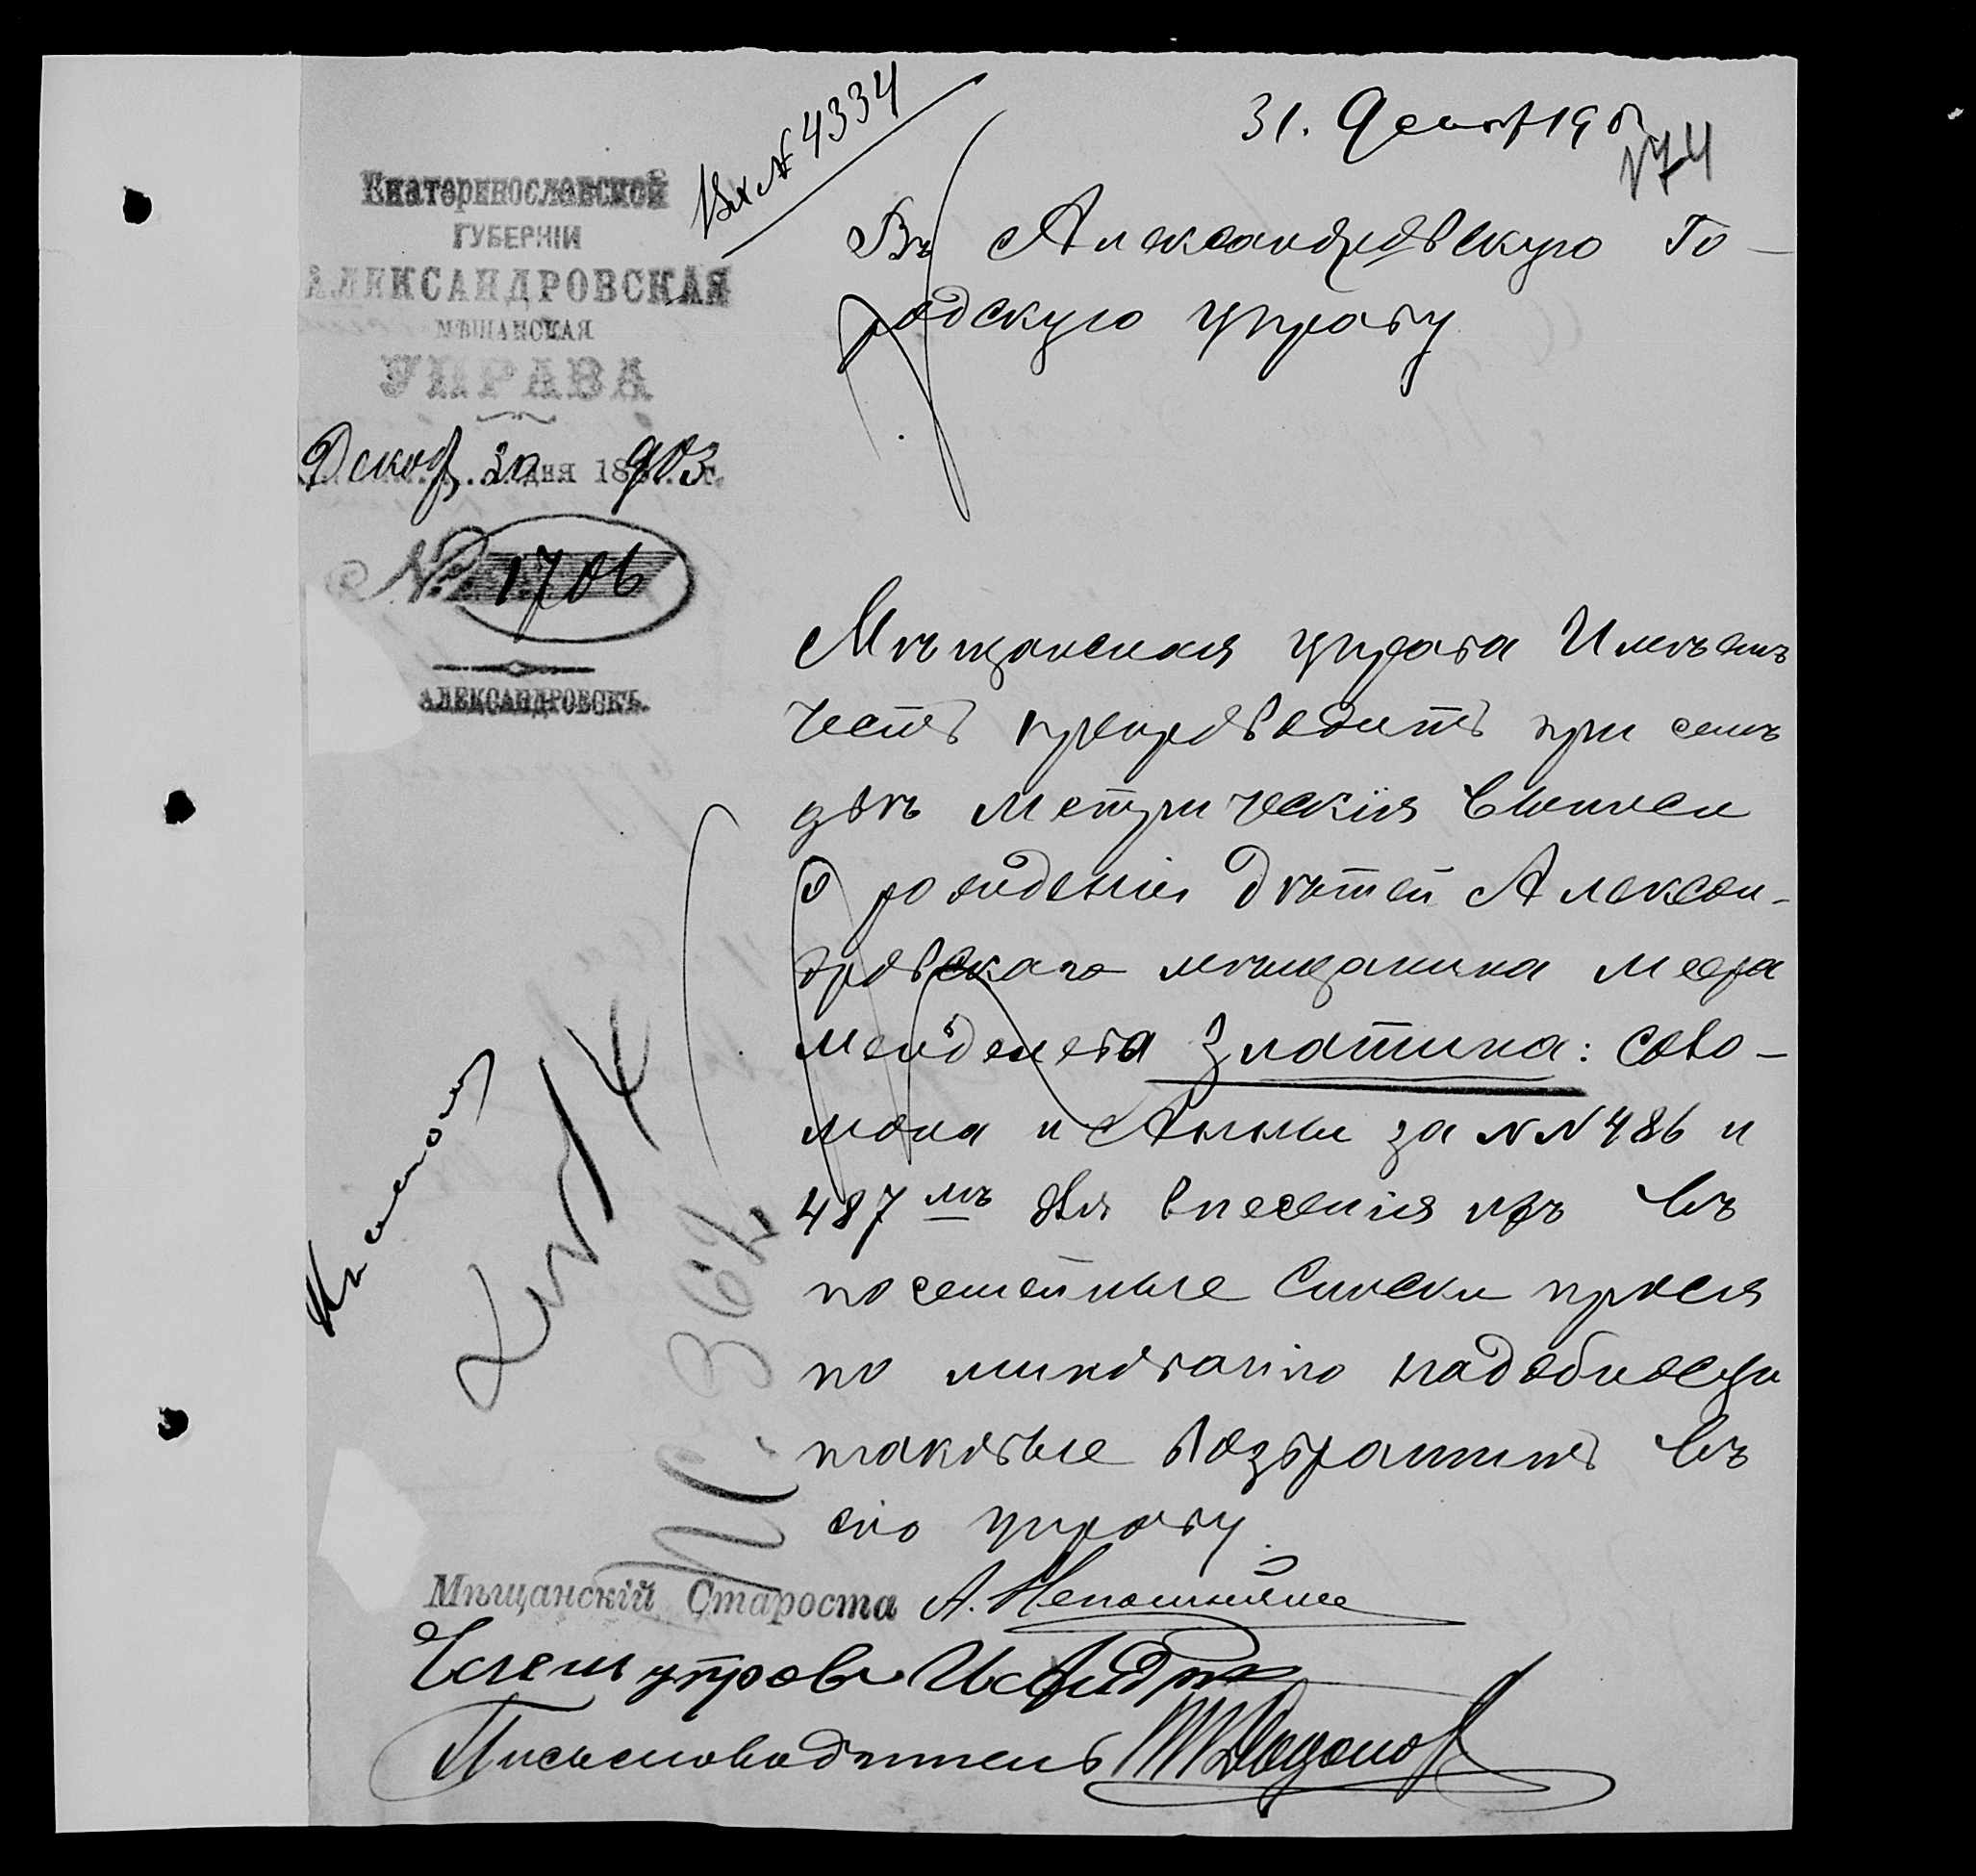 Вх № 4334
31. Декаб 190
174
Екатеринославской
ГУБЕРНІИ
АЛЕКСАНДРОВСКАЯ
МѢЩАНСКАЯ
УПРАВА
Декаб. 30 дня 18903 г.
№ 1706
АЛЕКСАНДРОВСКЪ.
Въ Александровскую Го-
родскую управу
Мѣщанская управа Имѣетъ
честь препроводить при семъ
двѣ метрическія выписи
о рожденіи дѣтей Алексан-
дровскаго мѣщанина Меера
Менделева Златина: Соло-
мона и Анны за №№ 486 и
487 мъ для внесенія ихъ въ
посемейные списки прося
по минованію надобности
таковые возвратить въ
сію управу.
№ 362
Мѣщанскій Староста А.
Членъ управы
Письмоводитель